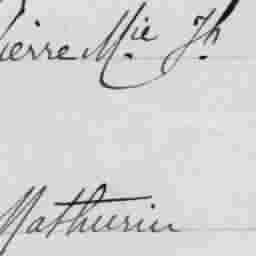 ierre M.ie Jh
Mathurin